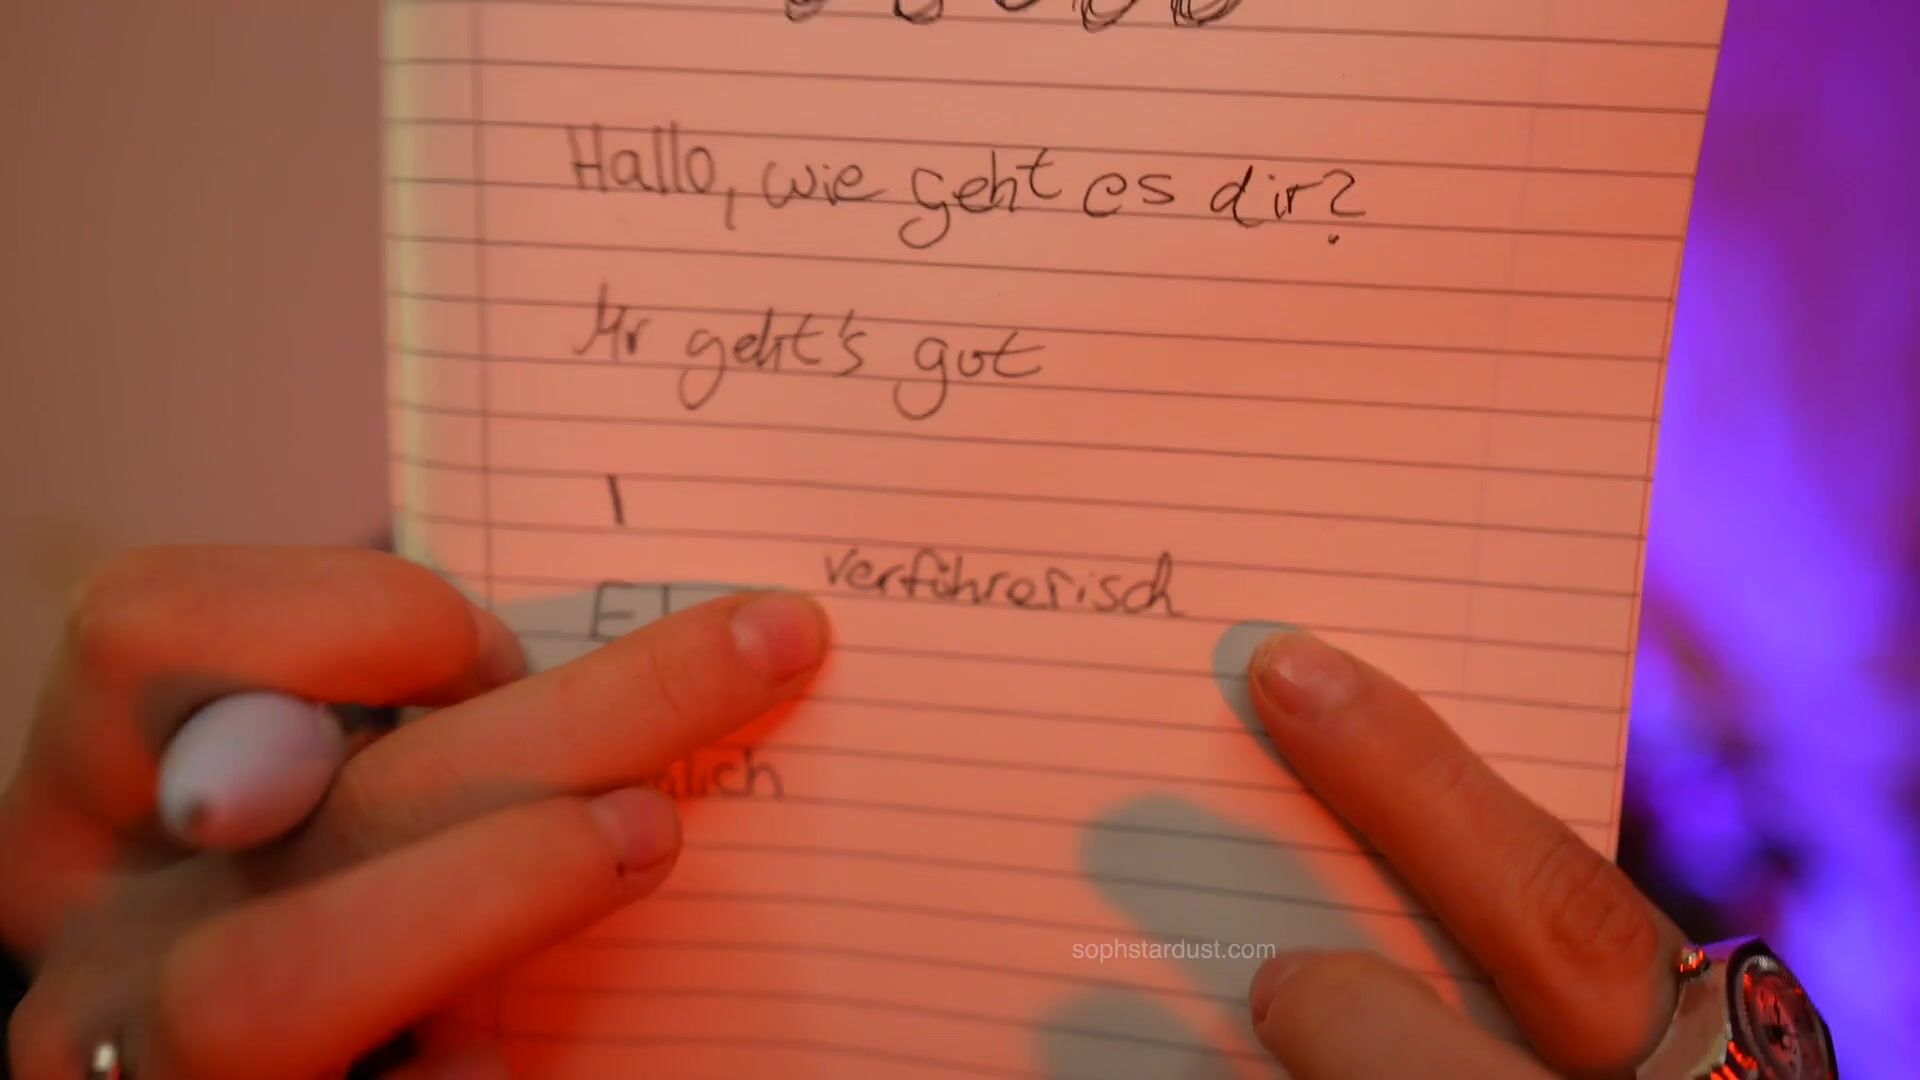 Hallo, wie geht es dir?
Mir geht's gut
I
verführerisch
sophstardust.com